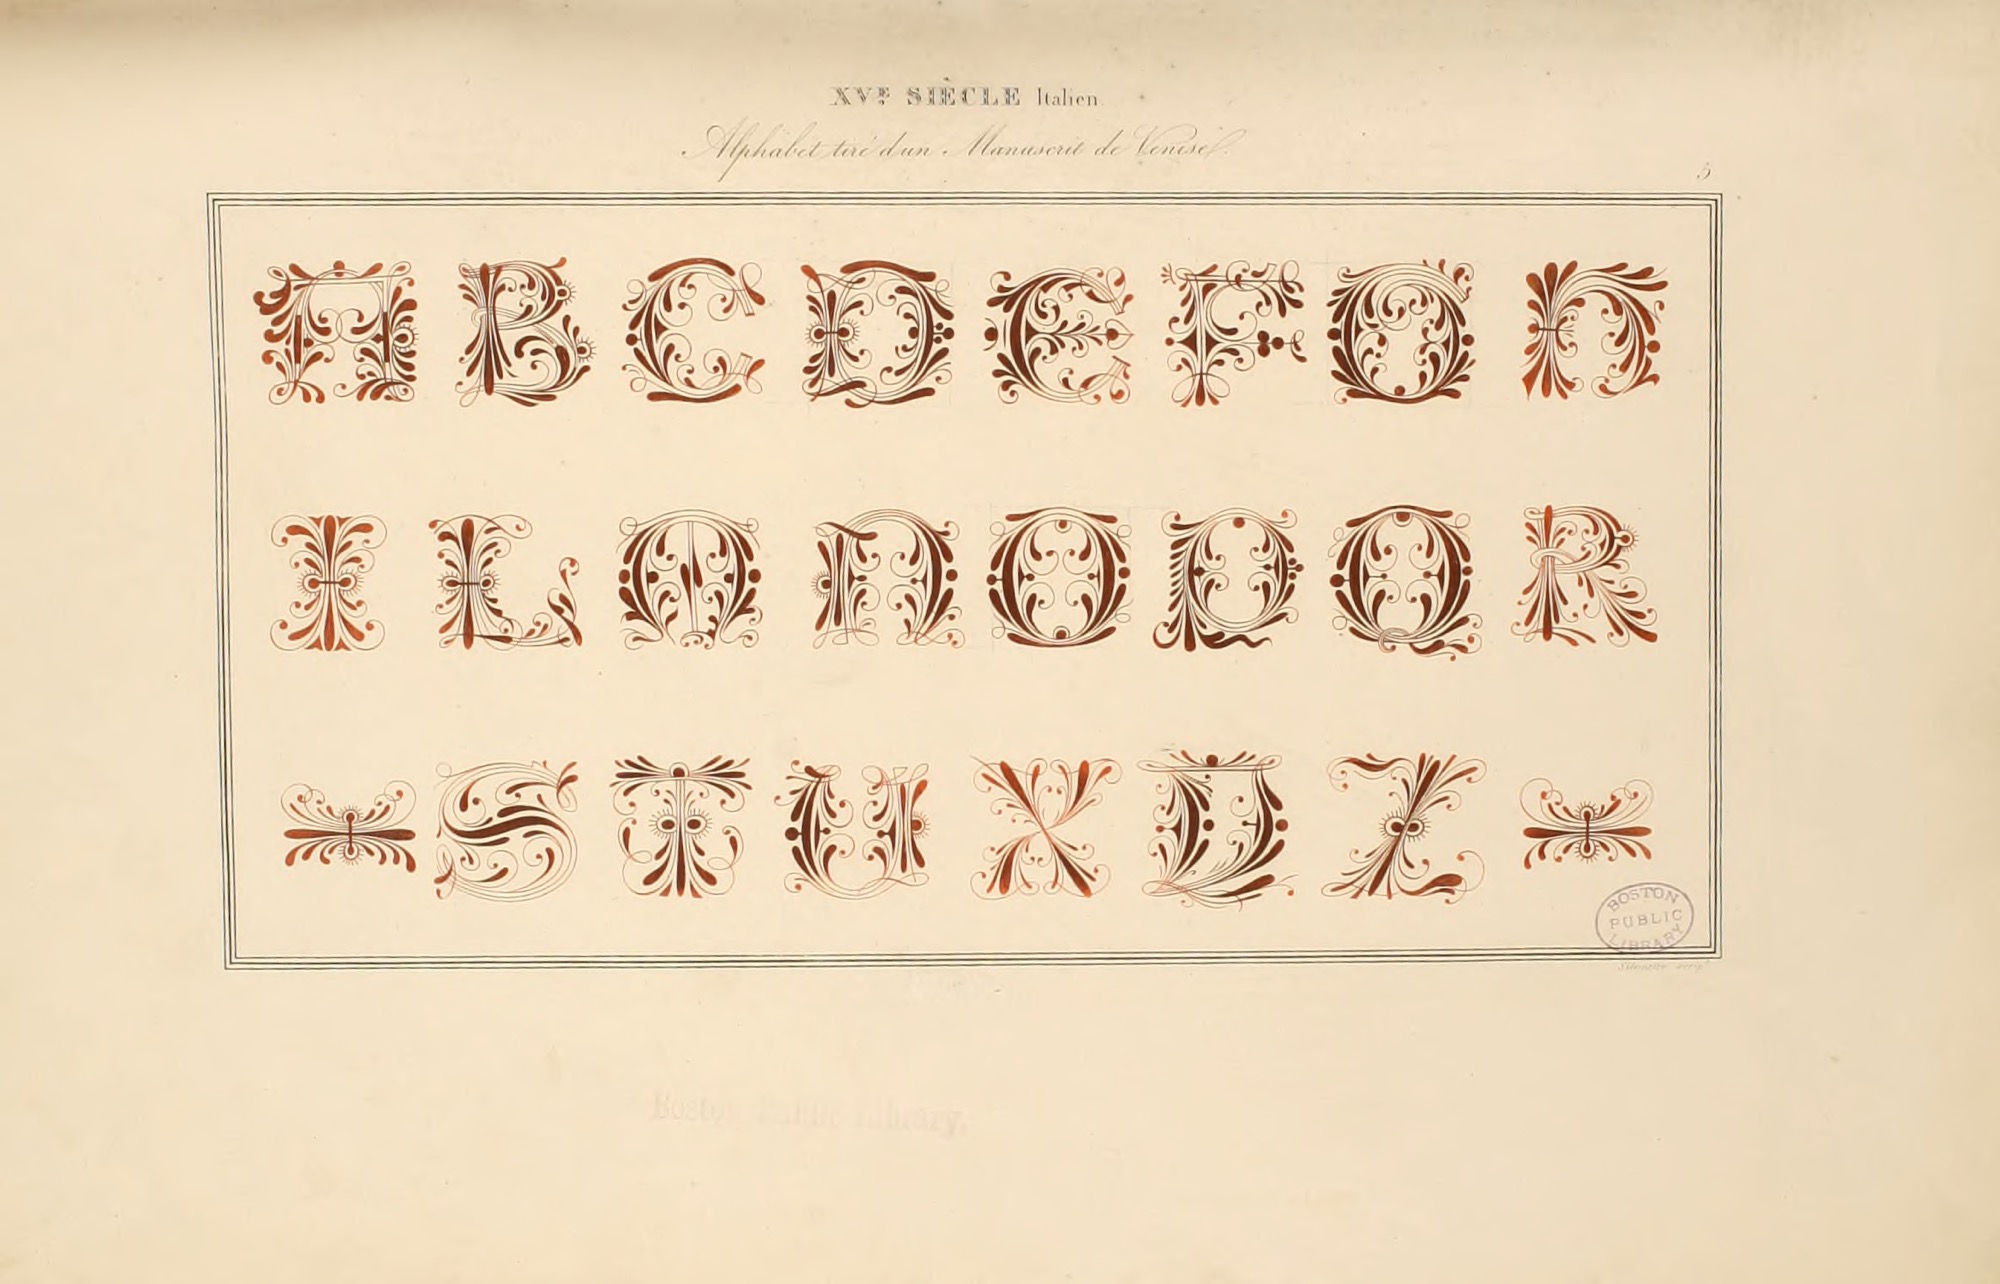 XVE SIÈCLE Italien.
Alphabet tiré d'un Manuscrit de Venise.
5
A B C D E F G H
I L M N O P Q R
S T U X V Z
BOSTON
PUBLIC
LIBRARY
Silvestre scrip.t
Boston Public Library.